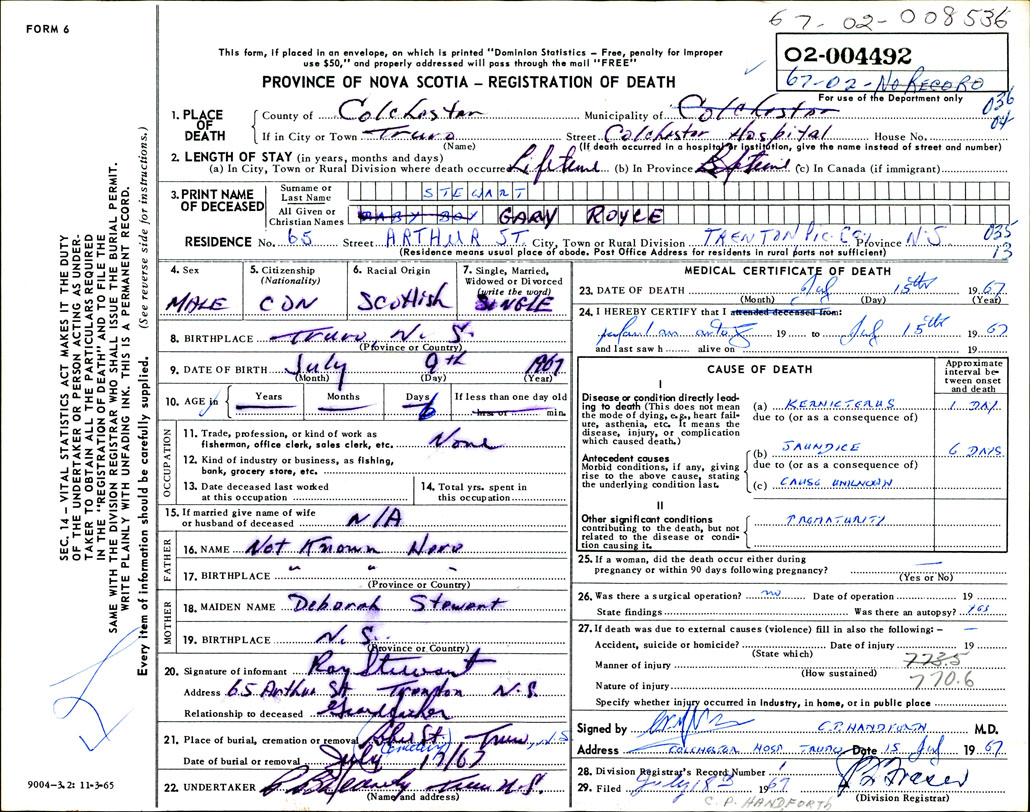 FORM 6
67-02-008536
This form, if placed in an envelope, on which is printed "Dominion Statistics – Free, penalty for improper
use $50," and properly addressed will pass through the mail "FREE"
O2-004492
67-02-NO RECORD
For use of the Department only
PROVINCE OF NOVA SCOTIA – REGISTRATION OF DEATH
036
04
1. PLACE OF DEATH
County of Colchester Municipality of Colchester
If in City or Town Truro Street Colchester Hospital House No.
(Name) (If death occurred in a hospital or institution, give the name instead of street and number)
2. LENGTH OF STAY (in years, months and days)
(a) In City, Town or Rural Division where death occurred Lifetime (b) In Province Lifetime (c) In Canada (if immigrant)
3. PRINT NAME OF DECEASED
Surname or Last Name STEWART
All Given or Christian Names BABY BOY GARY ROYCE
RESIDENCE No. 65 Street ARTHUR ST City, Town or Rural Division TRENTON PIC. Co. Province N.S
035
13
(Residence means usual place of abode. Post Office Address for residents in rural parts not sufficient)
4. Sex
MALE
5. Citizenship
(Nationality)
CDN
6. Racial Origin
SCOTTISH
7. Single, Married, Widowed or Divorced
(write the word)
SINGLE
8. BIRTHPLACE Truro, N.S.
(Province or Country)
9. DATE OF BIRTH July 9th 1967
(Month) (Day) (Year)
10. AGE in Years Months Days 6 If less than one day old
hrs or min.
OCCUPATION
11. Trade, profession, or kind of work as
fisherman, office clerk, sales clerk, etc. None
12. Kind of industry or business, as fishing,
bank, grocery store, etc.
13. Date deceased last worked
at this occupation
14. Total yrs. spent in
this occupation
15. If married give name of wife
or husband of deceased N/A
FATHER
16. NAME Not Known Here
17. BIRTHPLACE " " -
(Province or Country)
MOTHER
18. MAIDEN NAME Deborah Stewart
19. BIRTHPLACE N.S.
(Province or Country)
20. Signature of informant Roy Stewart
Address 65 Arthur St Trenton N.S.
Relationship to deceased Grandfather
21. Place of burial, cremation or removal Truro, N.S
(Cemetery)
Date of burial or removal July 17/67
22. UNDERTAKER Truro N.S.
(Name and address)
MEDICAL CERTIFICATE OF DEATH
23. DATE OF DEATH July 15th 1967
(Month) (Day) (Year)
24. I HEREBY CERTIFY that I attended deceased from:
perform an autopsy 19 to July 15th 1967
and last saw h alive on 19
CAUSE OF DEATH
Approximate interval between onset and death
I
Disease or condition directly leading to death (This does not mean the mode of dying, e.g., heart failure, asthenia, etc. It means the disease, injury, or complication which caused death.)
(a) KERNICTERUS 1 DAY
due to (or as a consequence of)
Antecedent causes
Morbid conditions, if any, giving rise to the above cause, stating the underlying condition last.
(b) JAUNDICE 6 DAYS
due to (or as a consequence of)
(c) CAUSE UNKNOWN
II
Other significant conditions
contributing to the death, but not related to the disease or condition causing it.
PREMATURITY
25. If a woman, did the death occur either during
pregnancy or within 90 days following pregnancy? —
(Yes or No)
26. Was there a surgical operation? no Date of operation 19
State findings Was there an autopsy? yes
27. If death was due to external causes (violence) fill in also the following: – –
Accident, suicide or homicide? Date of injury 19
(State which)
773.5
Manner of injury
(How sustained)
770.6
Nature of injury
Specify whether injury occurred in Industry, in home, or in public place
Signed by C.P. HANDFORTH M.D.
Address COLCHESTER HOSP TRURO Date 15 July 1967
28. Division Registrar's Record Number
29. Filed July 18 1967
(Division Registrar)
C. P. HANDFORTH
SEC. 14 – VITAL STATISTICS ACT MAKES IT THE DUTY
OF THE UNDERTAKER OR PERSON ACTING AS UNDER-
TAKER TO OBTAIN ALL THE PARTICULARS REQUIRED
IN THE "REGISTRATION OF DEATH" AND TO FILE THE
SAME WITH THE DIVISION REGISTRAR WHO SHALL ISSUE THE BURIAL PERMIT.
WRITE PLAINLY WITH UNFADING INK. THIS IS A PERMANENT RECORD.
Every item of information should be carefully supplied. (See reverse side for instructions.)
9004-3.2: 11-3-65